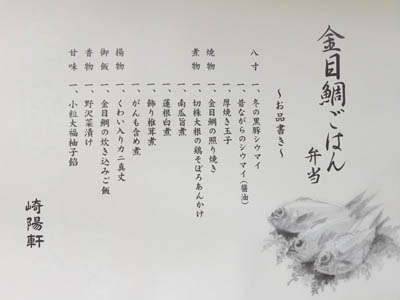 金目鯛ごはん
弁当
～お品書き～
八寸 一、冬の黒豚シウマイ
一、昔ながらのシウマイ（醤油）
一、厚焼き玉子
焼物 一、金目鯛の照り焼き
煮物 一、切株大根の鶏そぼろあんかけ
一、南瓜旨煮
一、蓮根白煮
一、飾り椎茸煮
一、がんも含め煮
揚物 一、くわい入りカニ真丈
御飯 一、金目鯛の炊き込みご飯
香物 一、野沢菜漬け
甘味 一、小粒大福柚子餡
崎陽軒